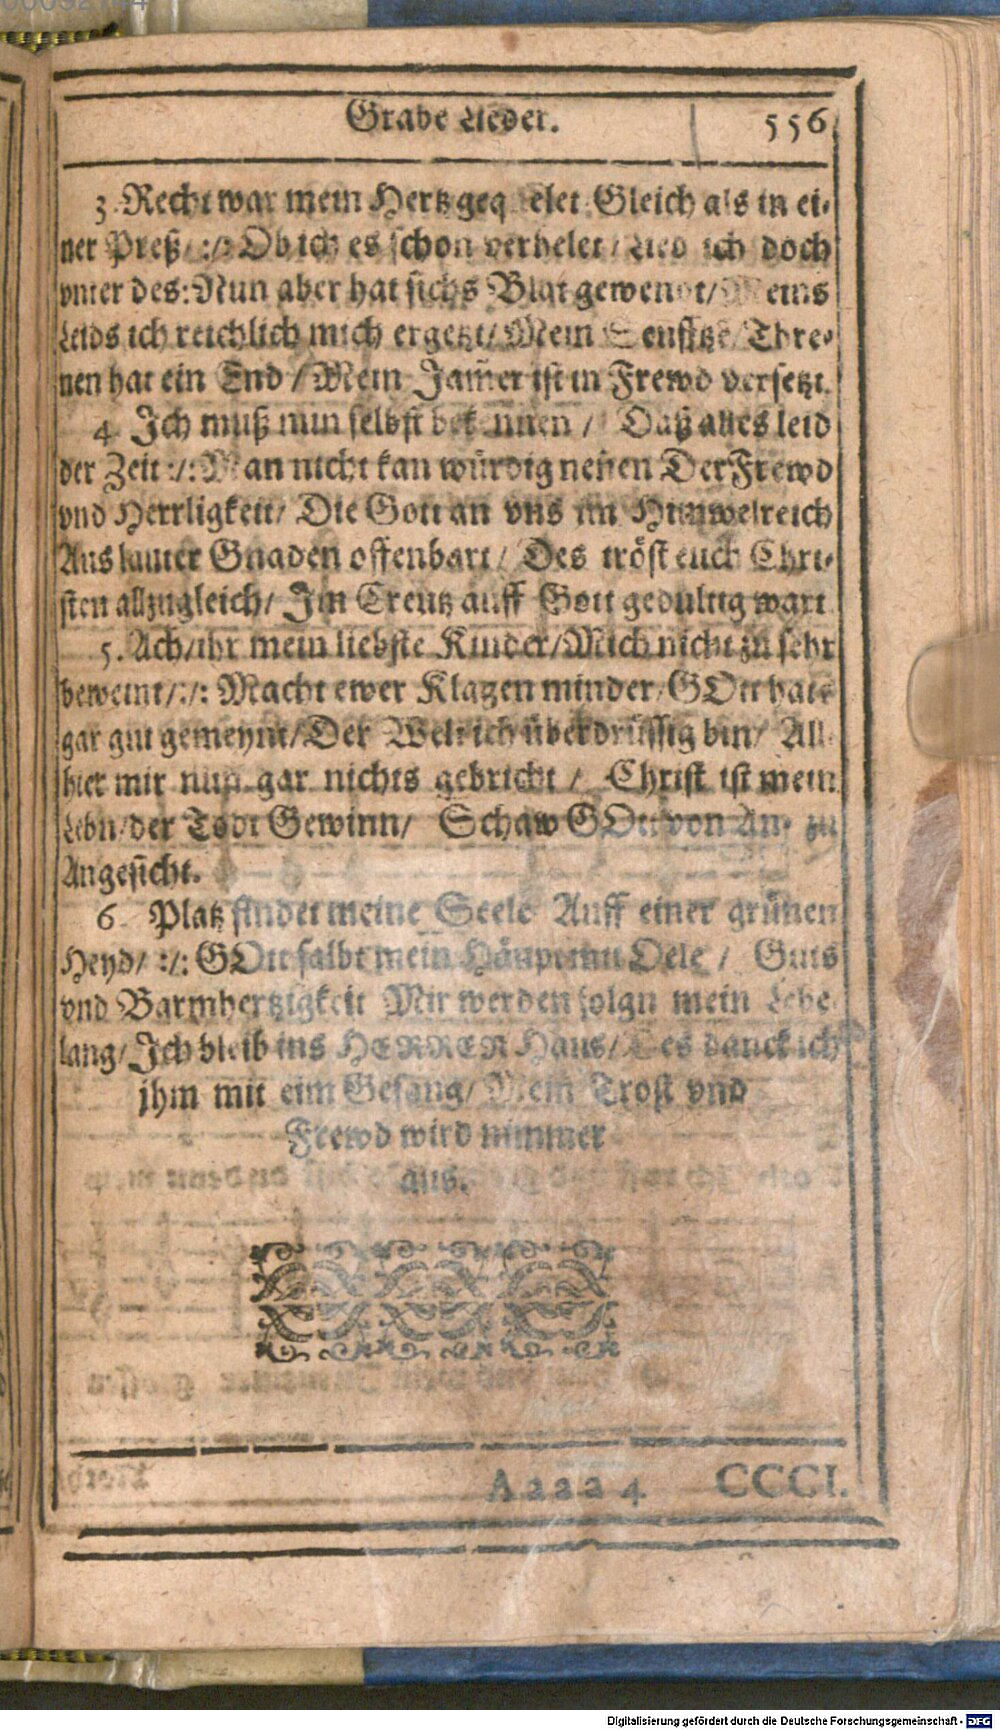 Grabe Lieder. 556
3. Recht war mein Hertz gequelet Gleich als in ei-
ner Preß/ :/: Ob ich es schon verhelet / Lied ich doch
vnter des: Nun aber hat sichs Blat gewendt/ Meins
Leids ich reichlich mich ergetzt/ Mein Seufftze/ Thre-
nen hat ein End / Mein Jam̃er ist in Frewd versetzt.
4. Ich muß nun selbst bekennen / Daß alles leid
der Zeit :/: Man nicht kan würdig nennen Der Frewd
vnd Herrligkeit/ Die Gott an vns im Himmelreich
Aus lauter Gnaden offenbart / Des tröst euch Chri-
sten allzugleich/ Im Creutz auff Gott gedultig wart
5. Ach/ ihr mein liebste Kinder/ Mich nicht zu sehr
beweint/ :/: Macht ewer Klagen minder/ GOtt hats
gar gut gemeynt/ Der Welt ich überdrüssig bin/ All-
hier mir nun gar nichts gebricht / Christ ist mein
Lebn/ der Todt Gewinn/ Schaw GOtt von An- zu
Angesicht.
6. Platz findet meine Seele Auff einer grünen
Heyd/ :/: GOtt salbt mein Häupt mit Oele / Guts
vnd Barmhertzigkeit Mir werden folgn mein Lebe-
lang/ Ich bleib ins HERREN Haus/ Des danck ich
jhm mit eim Gesang/ Mein Trost vnd
Frewd wird nimmer
aus.
A a a a 4 CCCI.
Digitalisierung gefördert durch die Deutsche Forschungsgemeinschaft - DFG